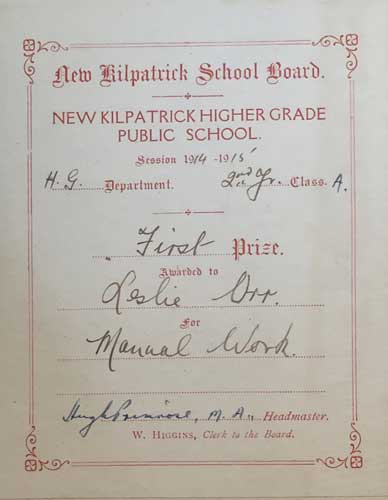 New Kilpatrick School Board.
NEW KILPATRICK HIGHER GRADE
PUBLIC SCHOOL.
Session 1914-1915
H. G. Department. 2nd Yr. Class. A.
First Prize.
Awarded to
Leslie Orr.
For
Manual Work.
Hugh Primrose, M.A., Headmaster.
W. HIGGINS, Clerk to the Board.